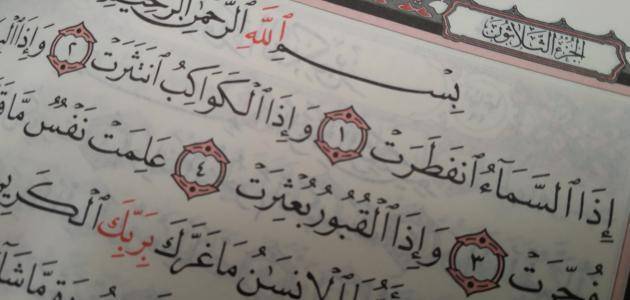 الجزء الثلاثون
بِسْمِ ٱللَّهِ ٱلرَّحْمَٰنِ ٱلرَّحِيمِ
إِذَا ٱلسَّمَآءُ ٱنفَطَرَتْ ١ وَإِذَا ٱلْكَوَاكِبُ ٱنتَثَرَتْ ٢ وَإِذَا
فُجِّرَتْ ٣ وَإِذَا ٱلْقُبُورُ بُعْثِرَتْ ٤ عَلِمَتْ نَفْسٌ مَّا
ٱلْإِنسَٰنُ مَا غَرَّكَ بِرَبِّكَ ٱلْكَرِيمِ
مَّا شَآءَ